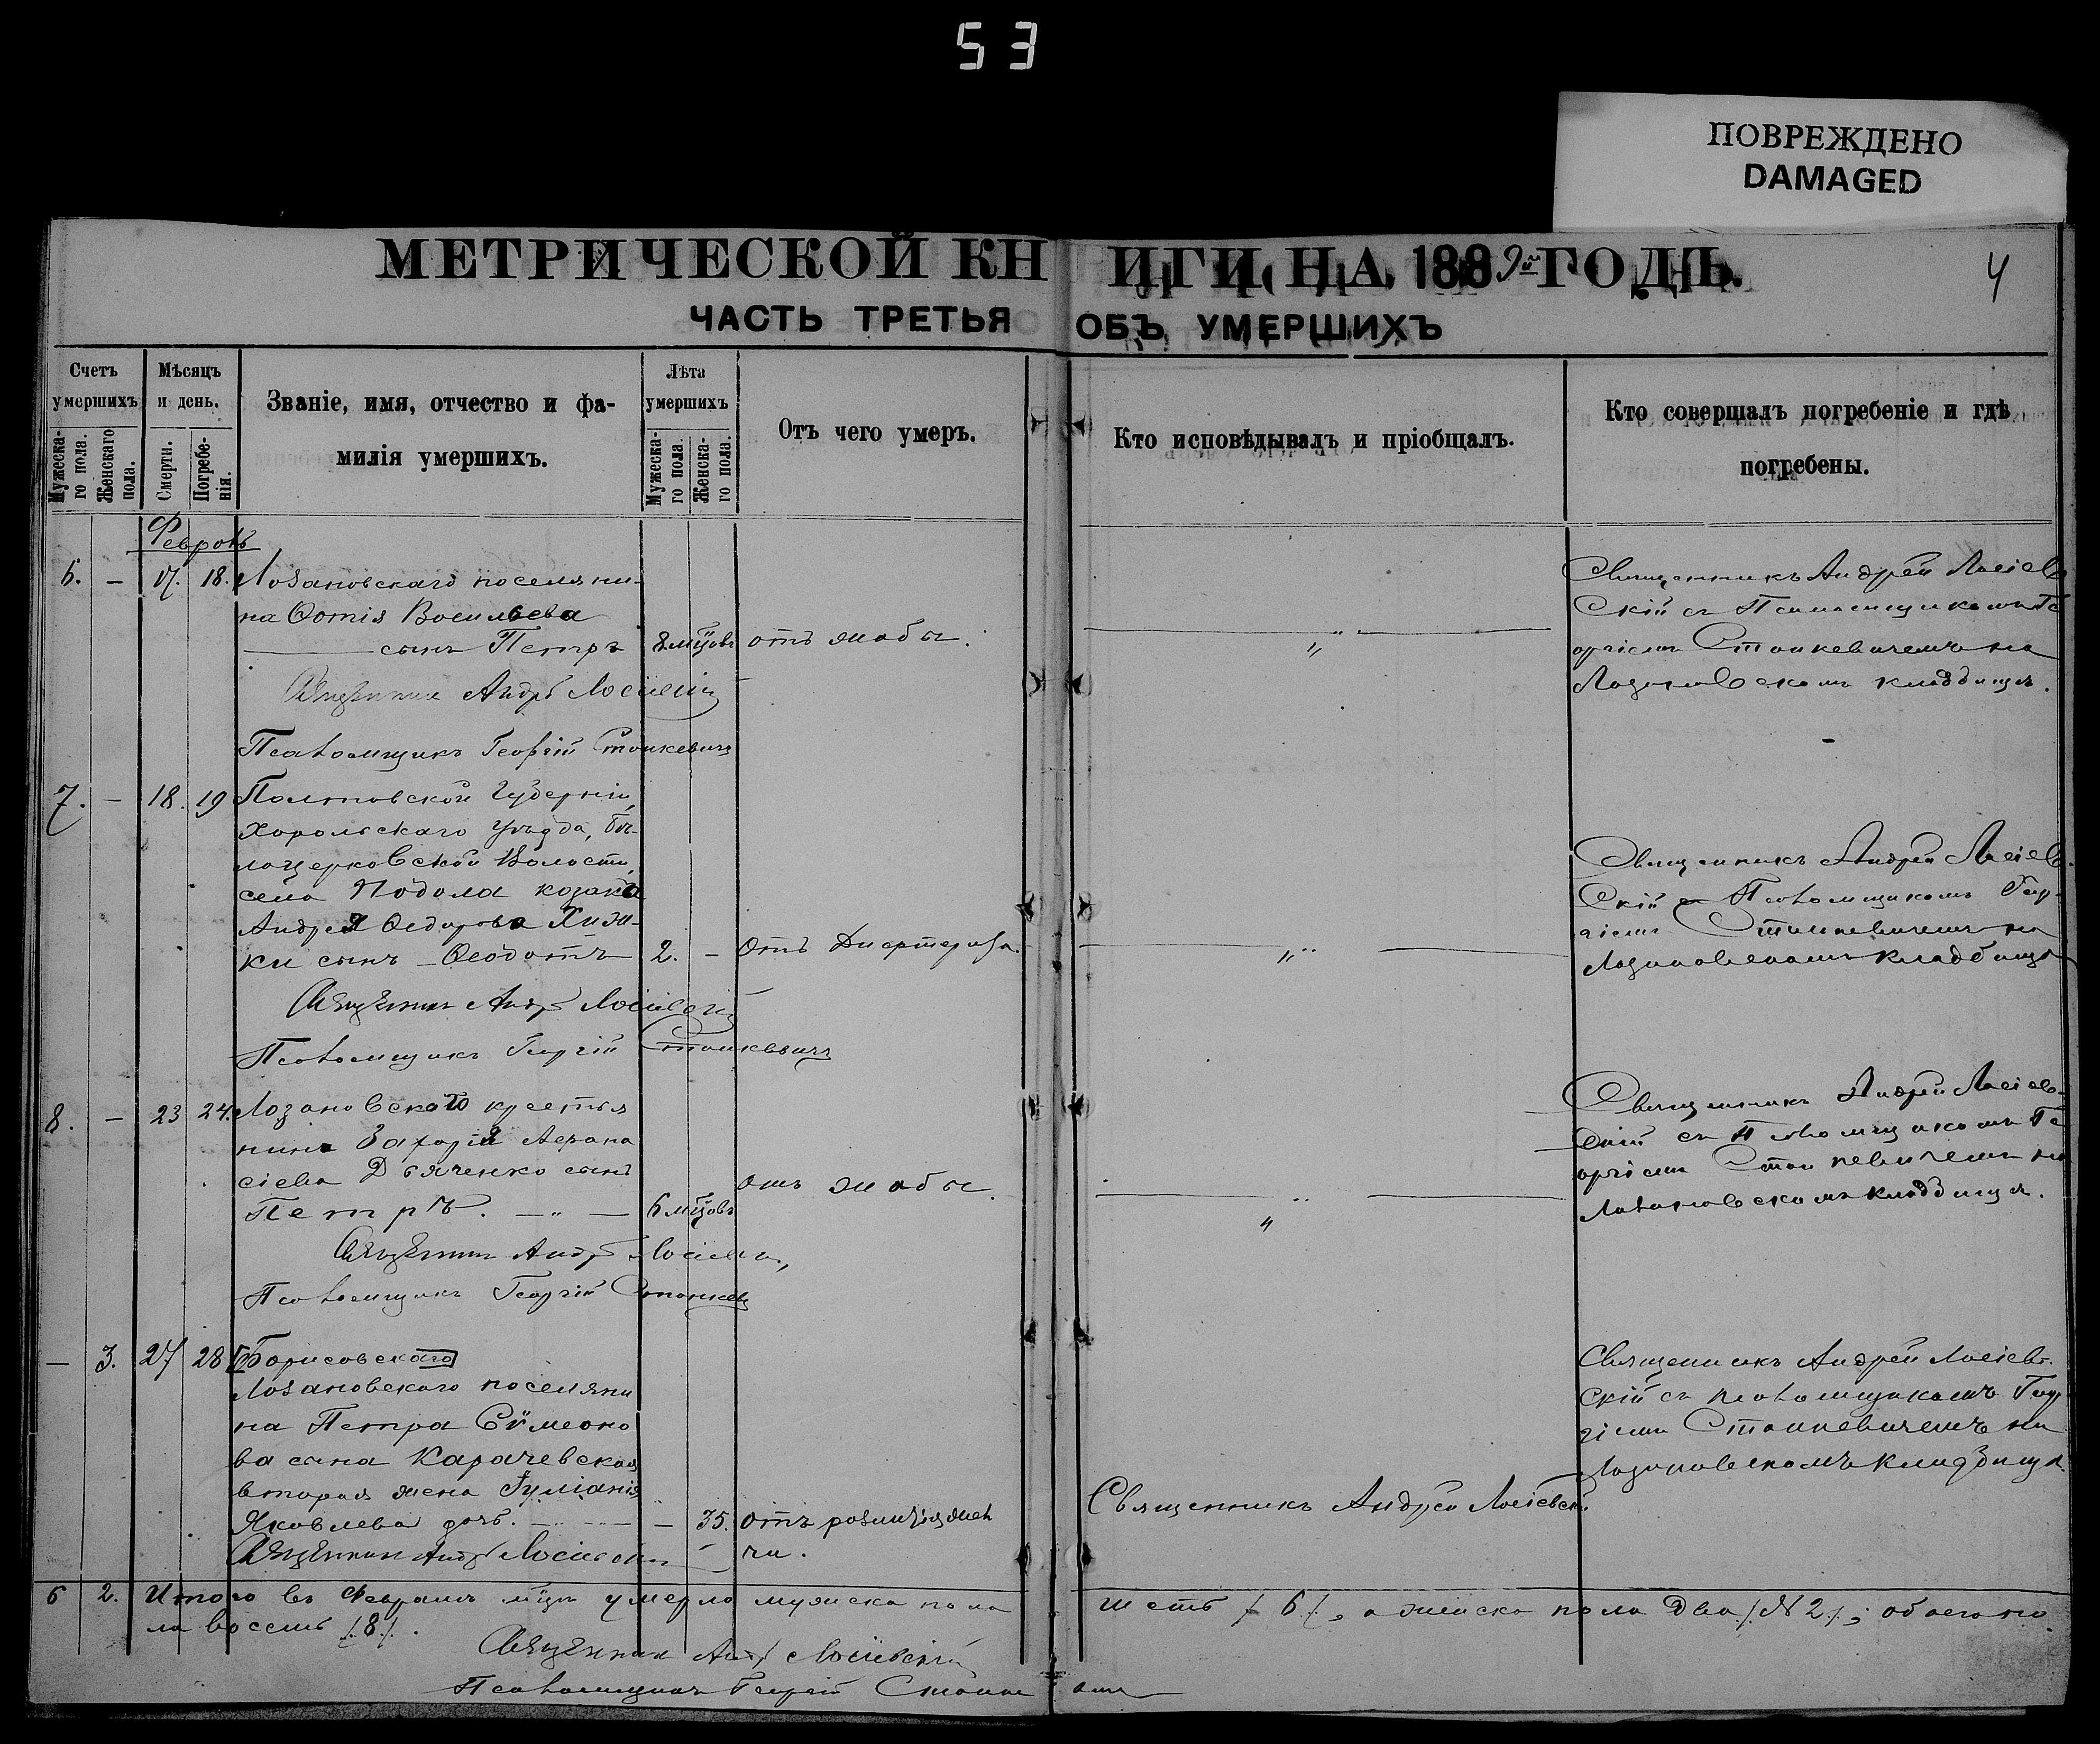 53
ПОВРЕЖДЕНО
DAMAGED
МЕТРИЧЕСКОЙ КНИГИ НА 1889й ГОДЪ.
4
ЧАСТЬ ТРЕТЬЯ ОБЪ УМЕРШИХЪ
Счетъ умершихъ
Мужескаго пола.
Женскаго пола.
Мѣсяцъ и день.
Смерти.
Погребенія.
Званіе, имя, отчество и фамилія умершихъ.
Лѣта умершихъ
Мужескаго пола
Женскаго пола.
Отъ чего умеръ.
Кто исповѣдывалъ и пріобщалъ.
Кто совершалъ погребеніе и гдѣ погребены.
6. – 17. 18. Лозановскаго поселяни-
на Ѳотія Васильева
сынъ Петръ
отъ жабы.
Священникъ Андрей
Псаломщикъ Георгій Станкевичъ
Священникъ Андрей Лосіев
скій съ Псаломщикомъ Ге
оргіемъ Станкевичемъ на
Лозановскомъ кладбищѣ.
7. – 18. 19 Полтавской Губерніи,
Хорольскаго Уѣзда, Бѣ-
лоцерковской Волости,
села Подола козака
Андрея Ѳедорова
ки сынъ – Ѳеодотъ 2. –
Священникъ Андр
Псаломщикъ Георгій Станкевичъ
Священникъ Андрей Лосіев
скій съ Псаломщикомъ Геор-
гіемъ Станкевичемъ на
Лозановскомъ кладбищѣ
8. – 23 24. Лозановскаго крестья
нина Захарія Аѳана
сіева Дьяченко сынъ
Петръ. 6 мцовъ
отъ жабы.
Священникъ Андр
Псаломщикъ Георгій
Священникъ Андрей Лосіев-
скій съ Псаломщикомъ Ге
оргіемъ Станкевичемъ на
Лозановскомъ кладбищѣ.
– 3. 27 28 Борисовскаго
Лозановскаго поселяни
на Петра Сѵмеоно
ва сына Карачевская
вторая жена Іуліанія
Яковлева дочь. – 35. отъ розлитія жел
чи.
Священникъ Андр
Священникъ Андрей Лосіевскій.
Священникъ Андрей Лосіев-
скій съ псаломщикомъ Геор
гіемъ Станкевичемъ на
Лозановскомъ кладбищѣ.
6 2. Итого въ Февралѣ мцѣ умерло мужска пола шесть /6/, а женска пола два /№ 2/; обоего по
ла восемь /8/.
Священникъ Анд
Псаломщикъ Георгій